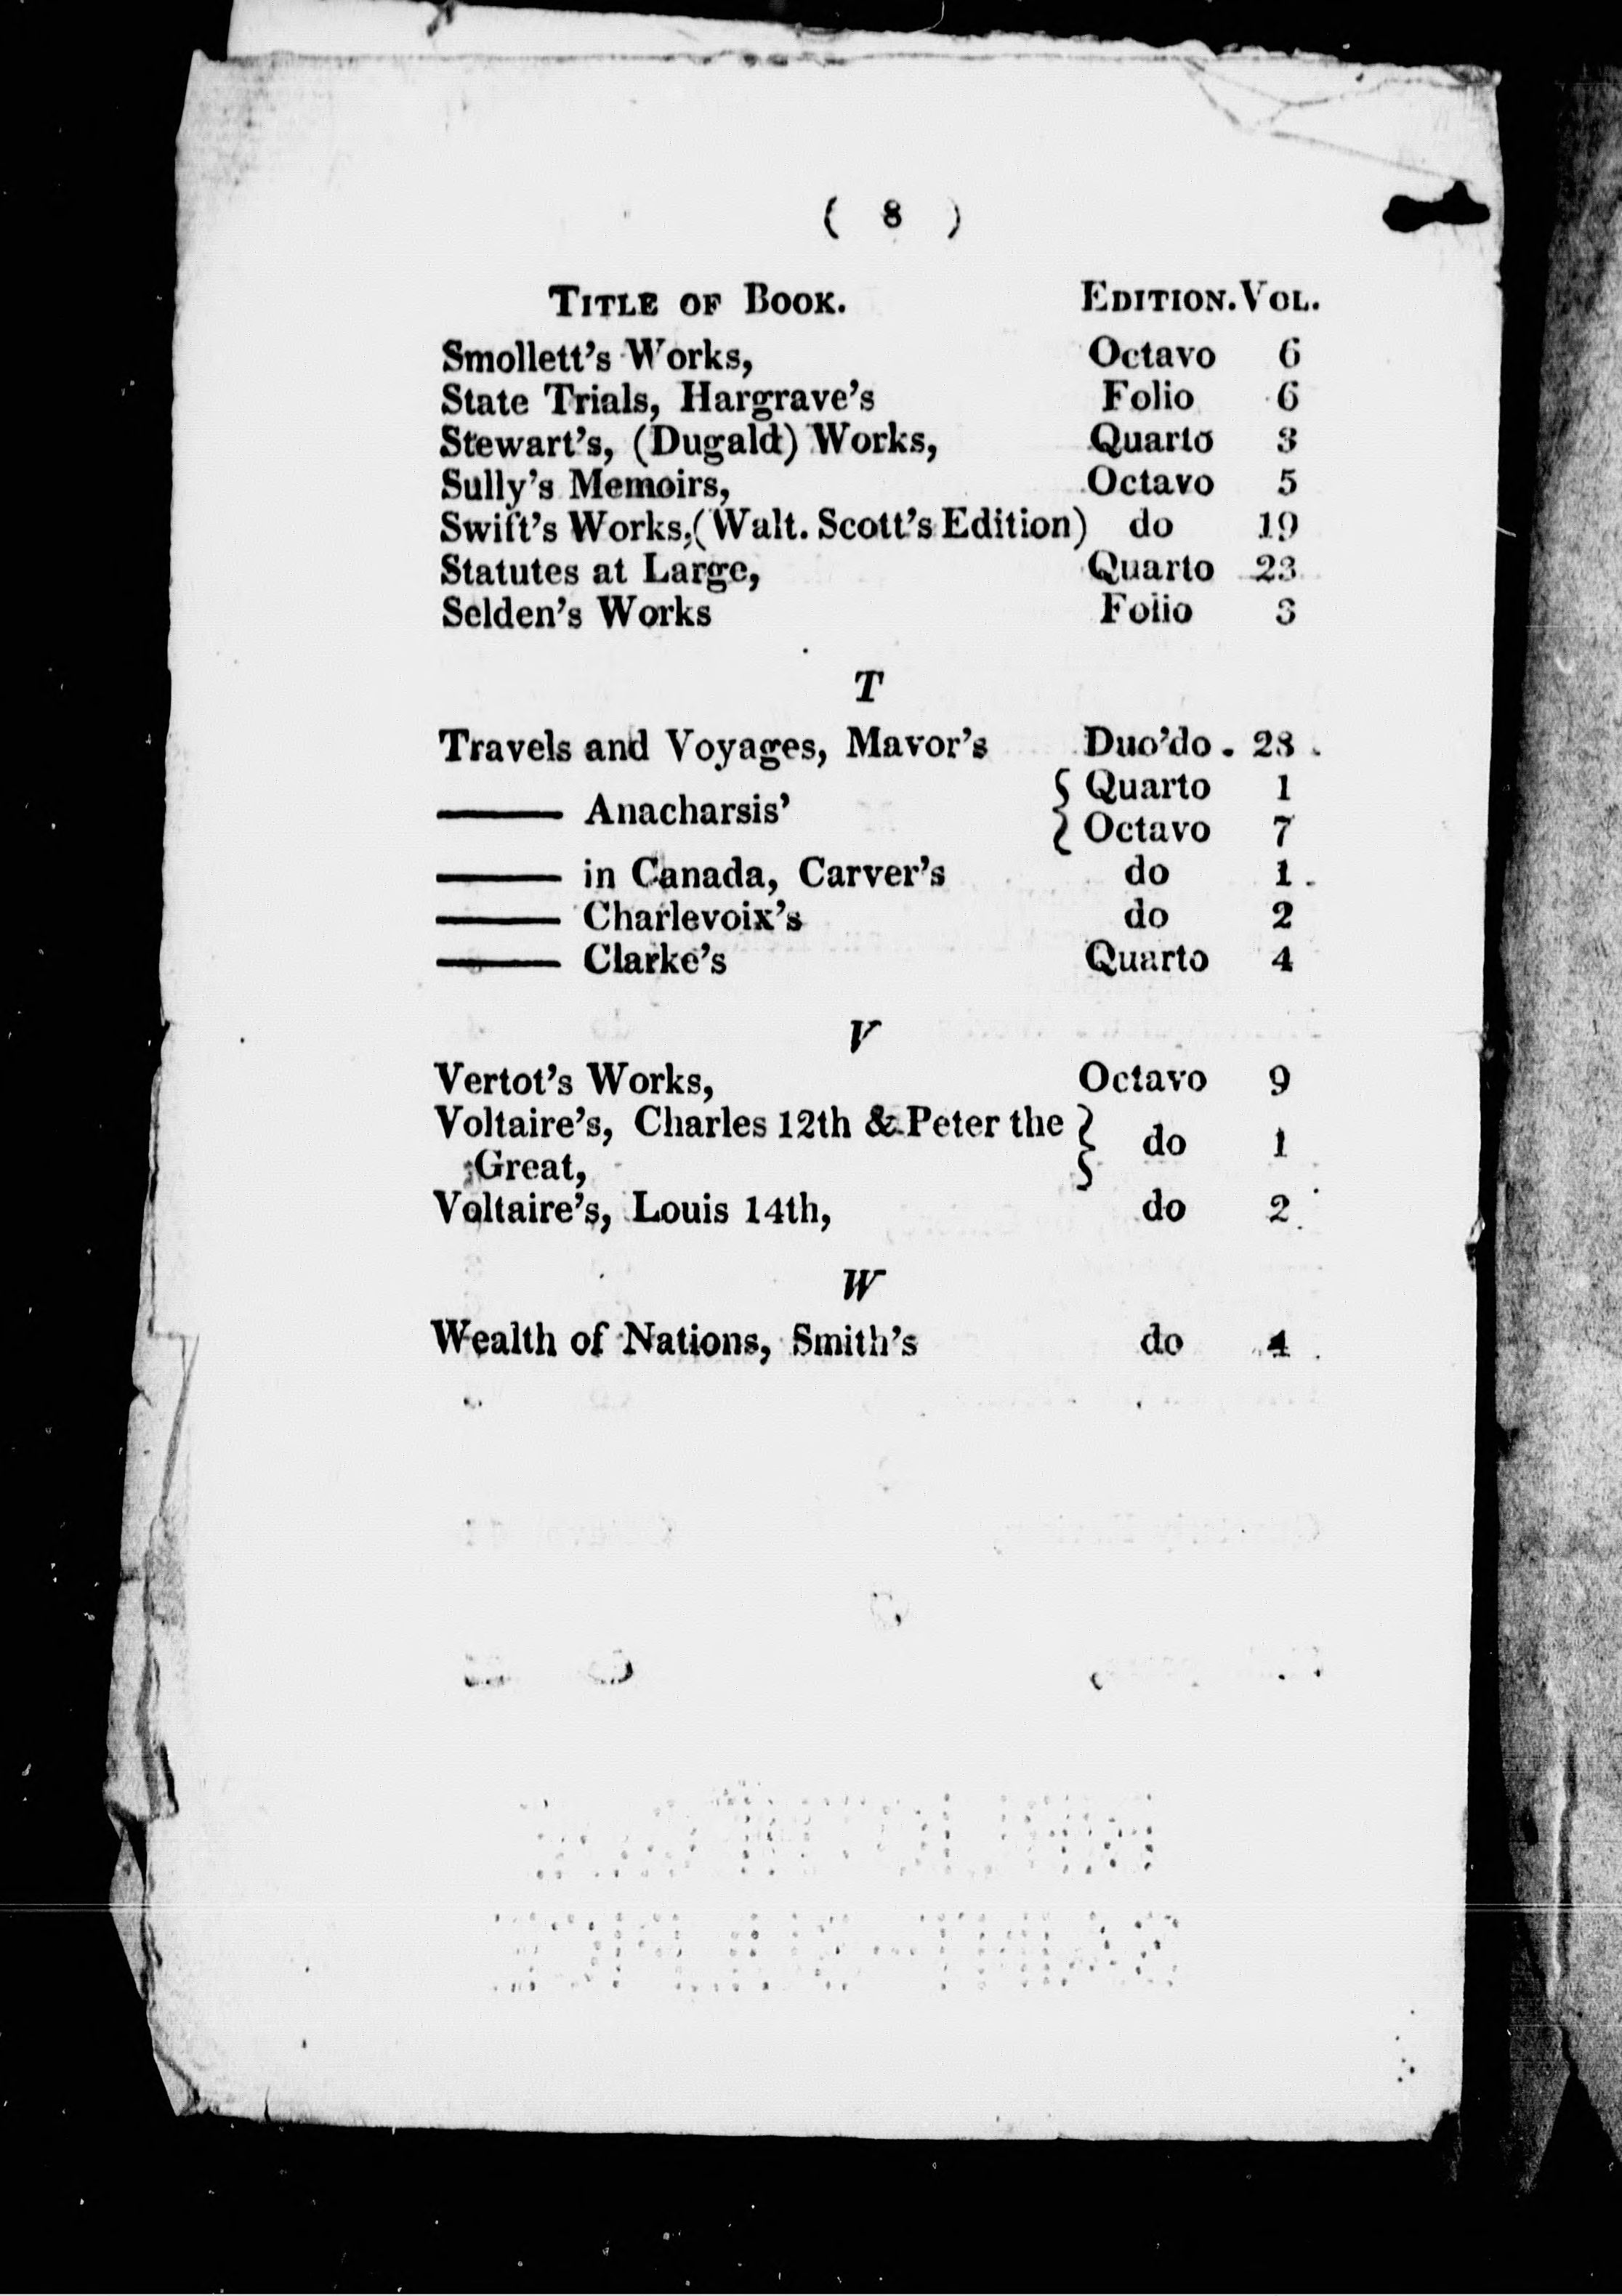 ( 8 )
TITLE OF BOOK. EDITION. VOL.
Smollett's Works, Octavo 6
State Trials, Hargrave's Folio 6
Stewart's, (Dugald) Works, Quarto 3
Sully's Memoirs, Octavo 5
Swift's Works,(Walt. Scott's Edition) do 19
Statutes at Large, Quarto 23
Selden's Works Folio 3
T
Travels and Voyages, Mavor's Duo'do. 28
—— Anacharsis' { Quarto 1
{ Octavo 7
—— in Canada, Carver's do 1
—— Charlevoix's do 2
—— Clarke's Quarto 4
V
Vertot's Works, Octavo 9
Voltaire's, Charles 12th & Peter the } do 1
Great,
Voltaire's, Louis 14th, do 2
W
Wealth of Nations, Smith's do 4